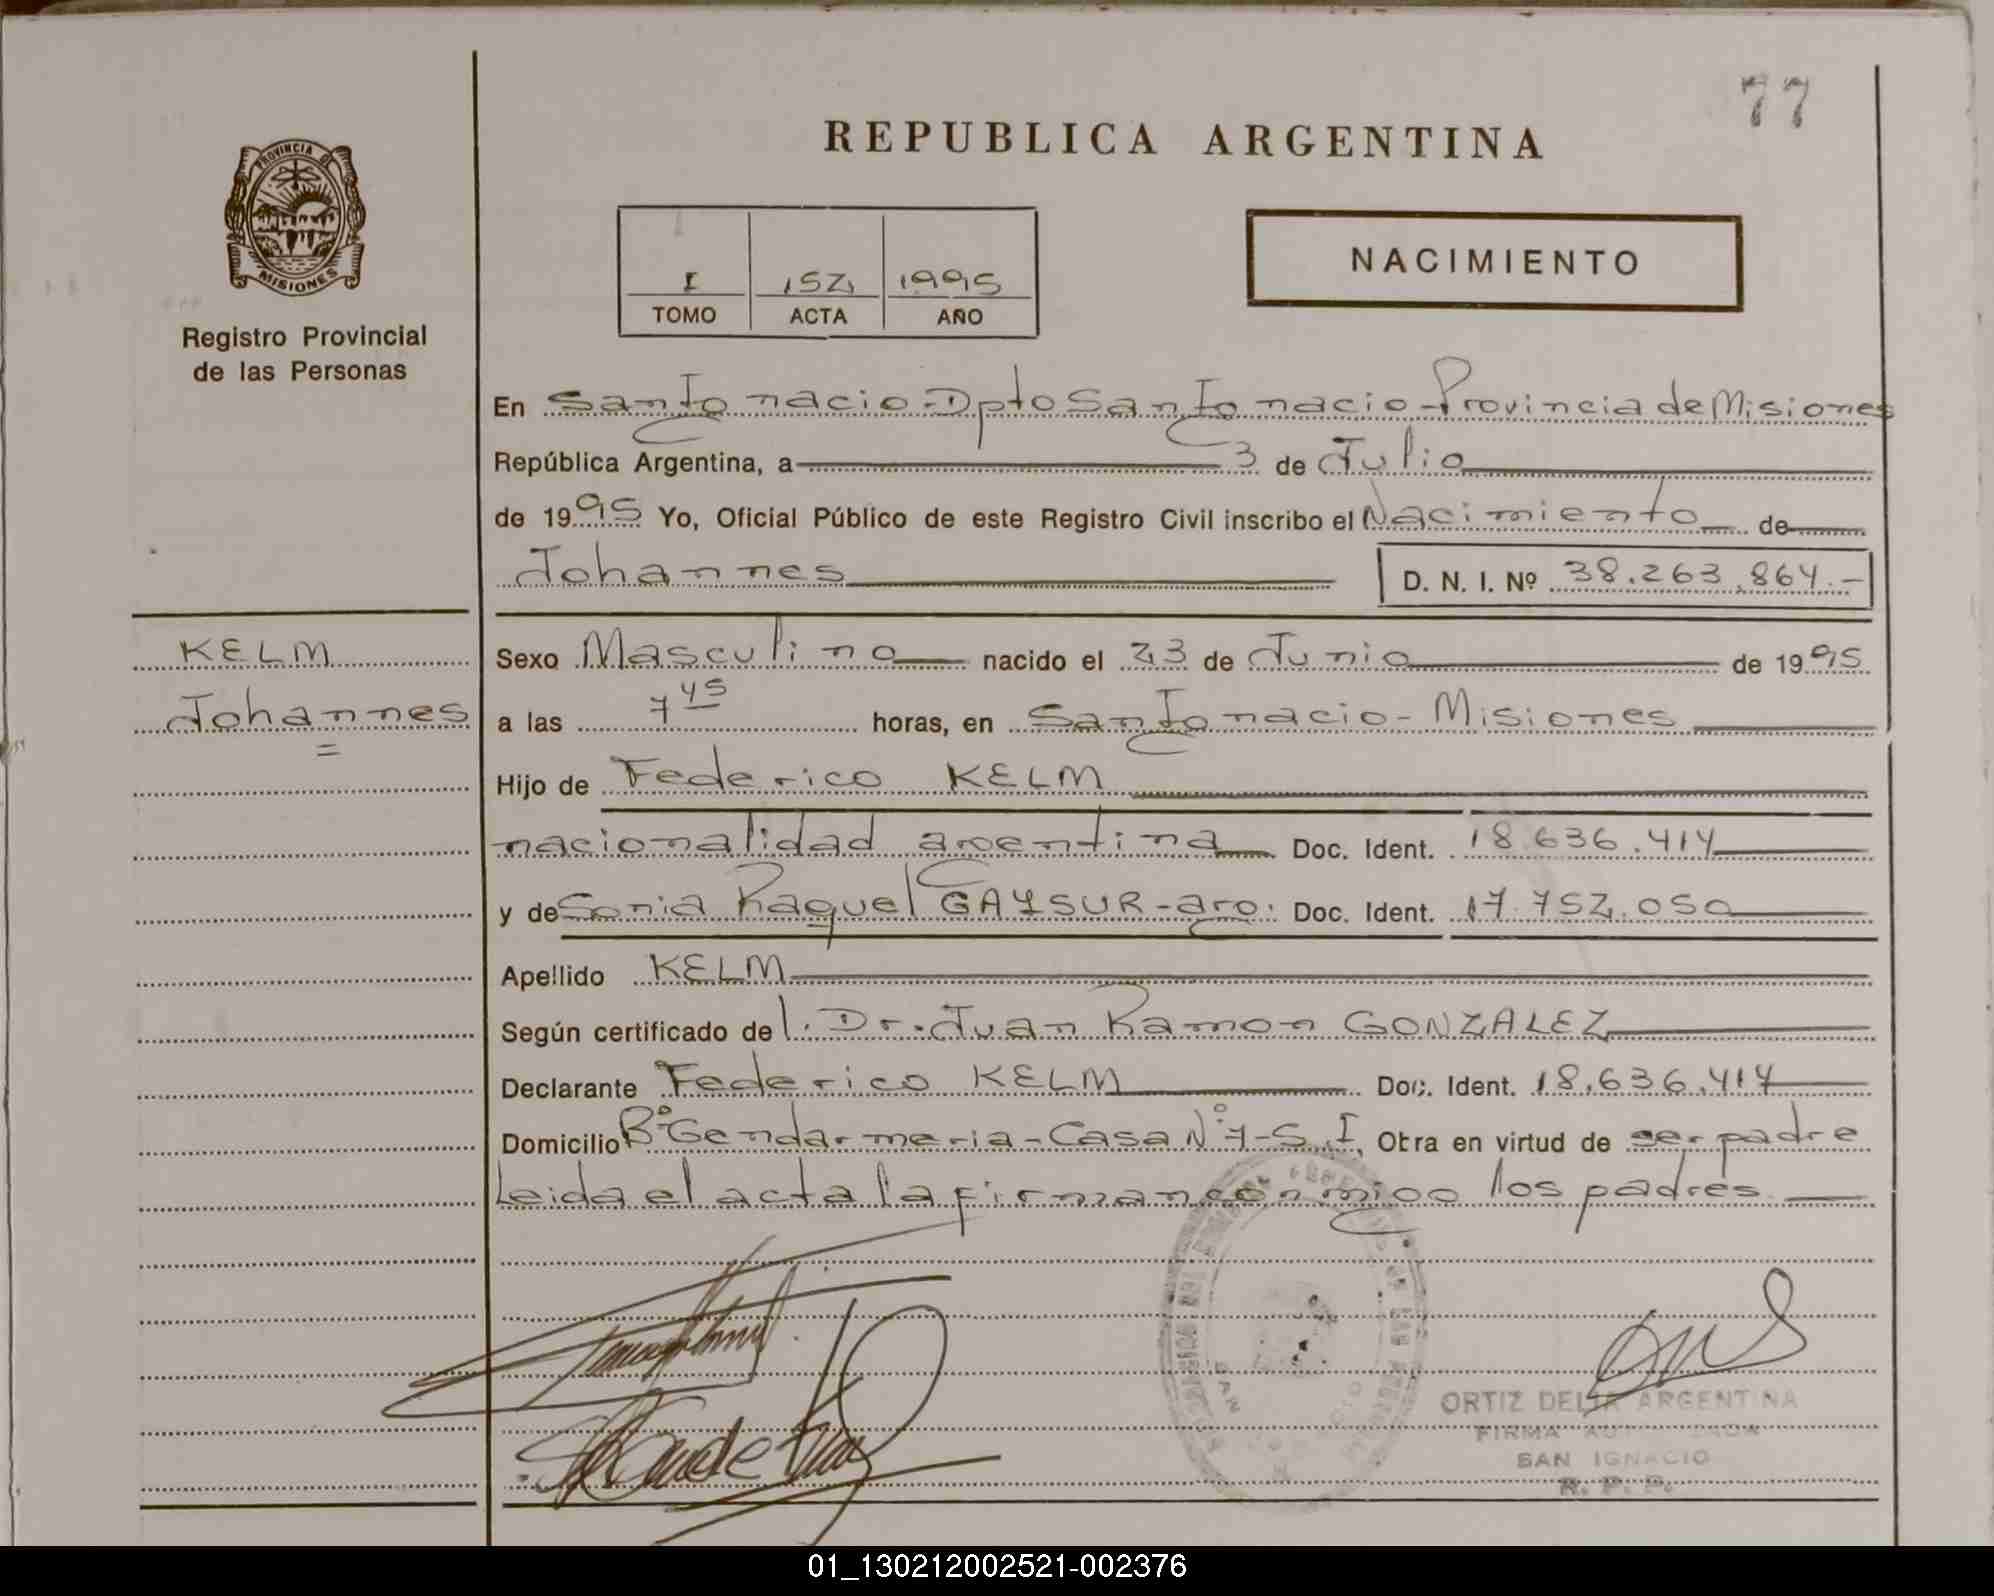 77
REPUBLICA ARGENTINA
PROVINCIA DE
MISIONES
Registro Provincial
de las Personas
I 152 1995
TOMO ACTA AÑO
NACIMIENTO
En San Ignacio - Dpto San Ignacio - Provincia de Misiones
República Argentina, a 3 de Julio
de 1995 Yo, Oficial Público de este Registro Civil inscribo el Nacimiento de
Johannes D. N. I. Nº 38.263.864.-
KELM
Johannes
=
Sexo Masculino nacido el 23 de Junio de 1995
a las 7 45 horas, en San Ignacio - Misiones
Hijo de Federico KELM
nacionalidad argentina Doc. Ident. 18.636.414
y de Sonia Raquel GAYSUR - arg. Doc. Ident. 17.752.050
Apellido KELM
Según certificado del. Dr. Juan Ramon GONZALEZ
Declarante Federico KELM Doc. Ident. 18.636.414
Domicilio Bº Gendarmeria - Casa Nº 7 - S.I. Obra en virtud de ser padre
Leida el acta la firman conmigo los padres
ORTIZ DELIA ARGENTINA
FIRMA AUTORIZADA
SAN IGNACIO
R. P. P.
01_130212002521-002376